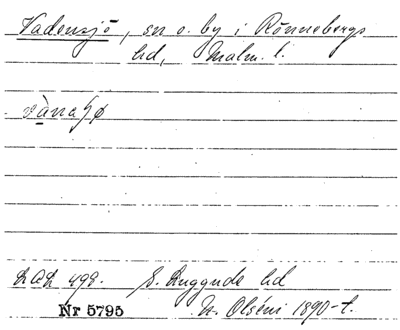 Vadensjö, sn o. by i Rönnebergs
hd, Malm. l.
vànaʃø
LAL 498. S. Luggude hd
Nr 5795 N. Olséni 1890-t.